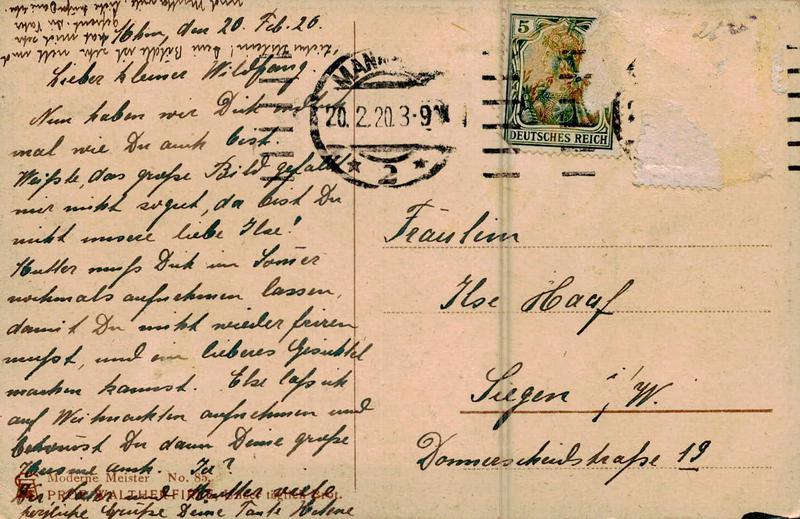 Mhm, den 20. Feb. 20.
Lieber kleiner Wildfang.
Nun haben wir Dich
mal wie Du auch bist.
Weißte, das große Bild gefällt
mir nicht so gut, da bist Du
nicht unsere liebe Ilse!
Mutter muß Dich im Somer
nochmals aufnehmen lassen,
damit Du nicht wieder friren
mußt, und ein lieberes Gesichtel
machen kannst. Else laß ich
auf Weihnachten aufnehmen und
bekomst Du dann Deine große
auch. Ja?
Mutter viele
herzliche Grüße Deine Tante Helene
Moderne Meister No. 85.
PROF. WALTHER FIRLE
MAN
20.2.20.3-9N
* 2 *
5
DEUTSCHES REICH
Fräulein
Ilse Haaf
Siegen i/W.
Donnerscheidstraße 19